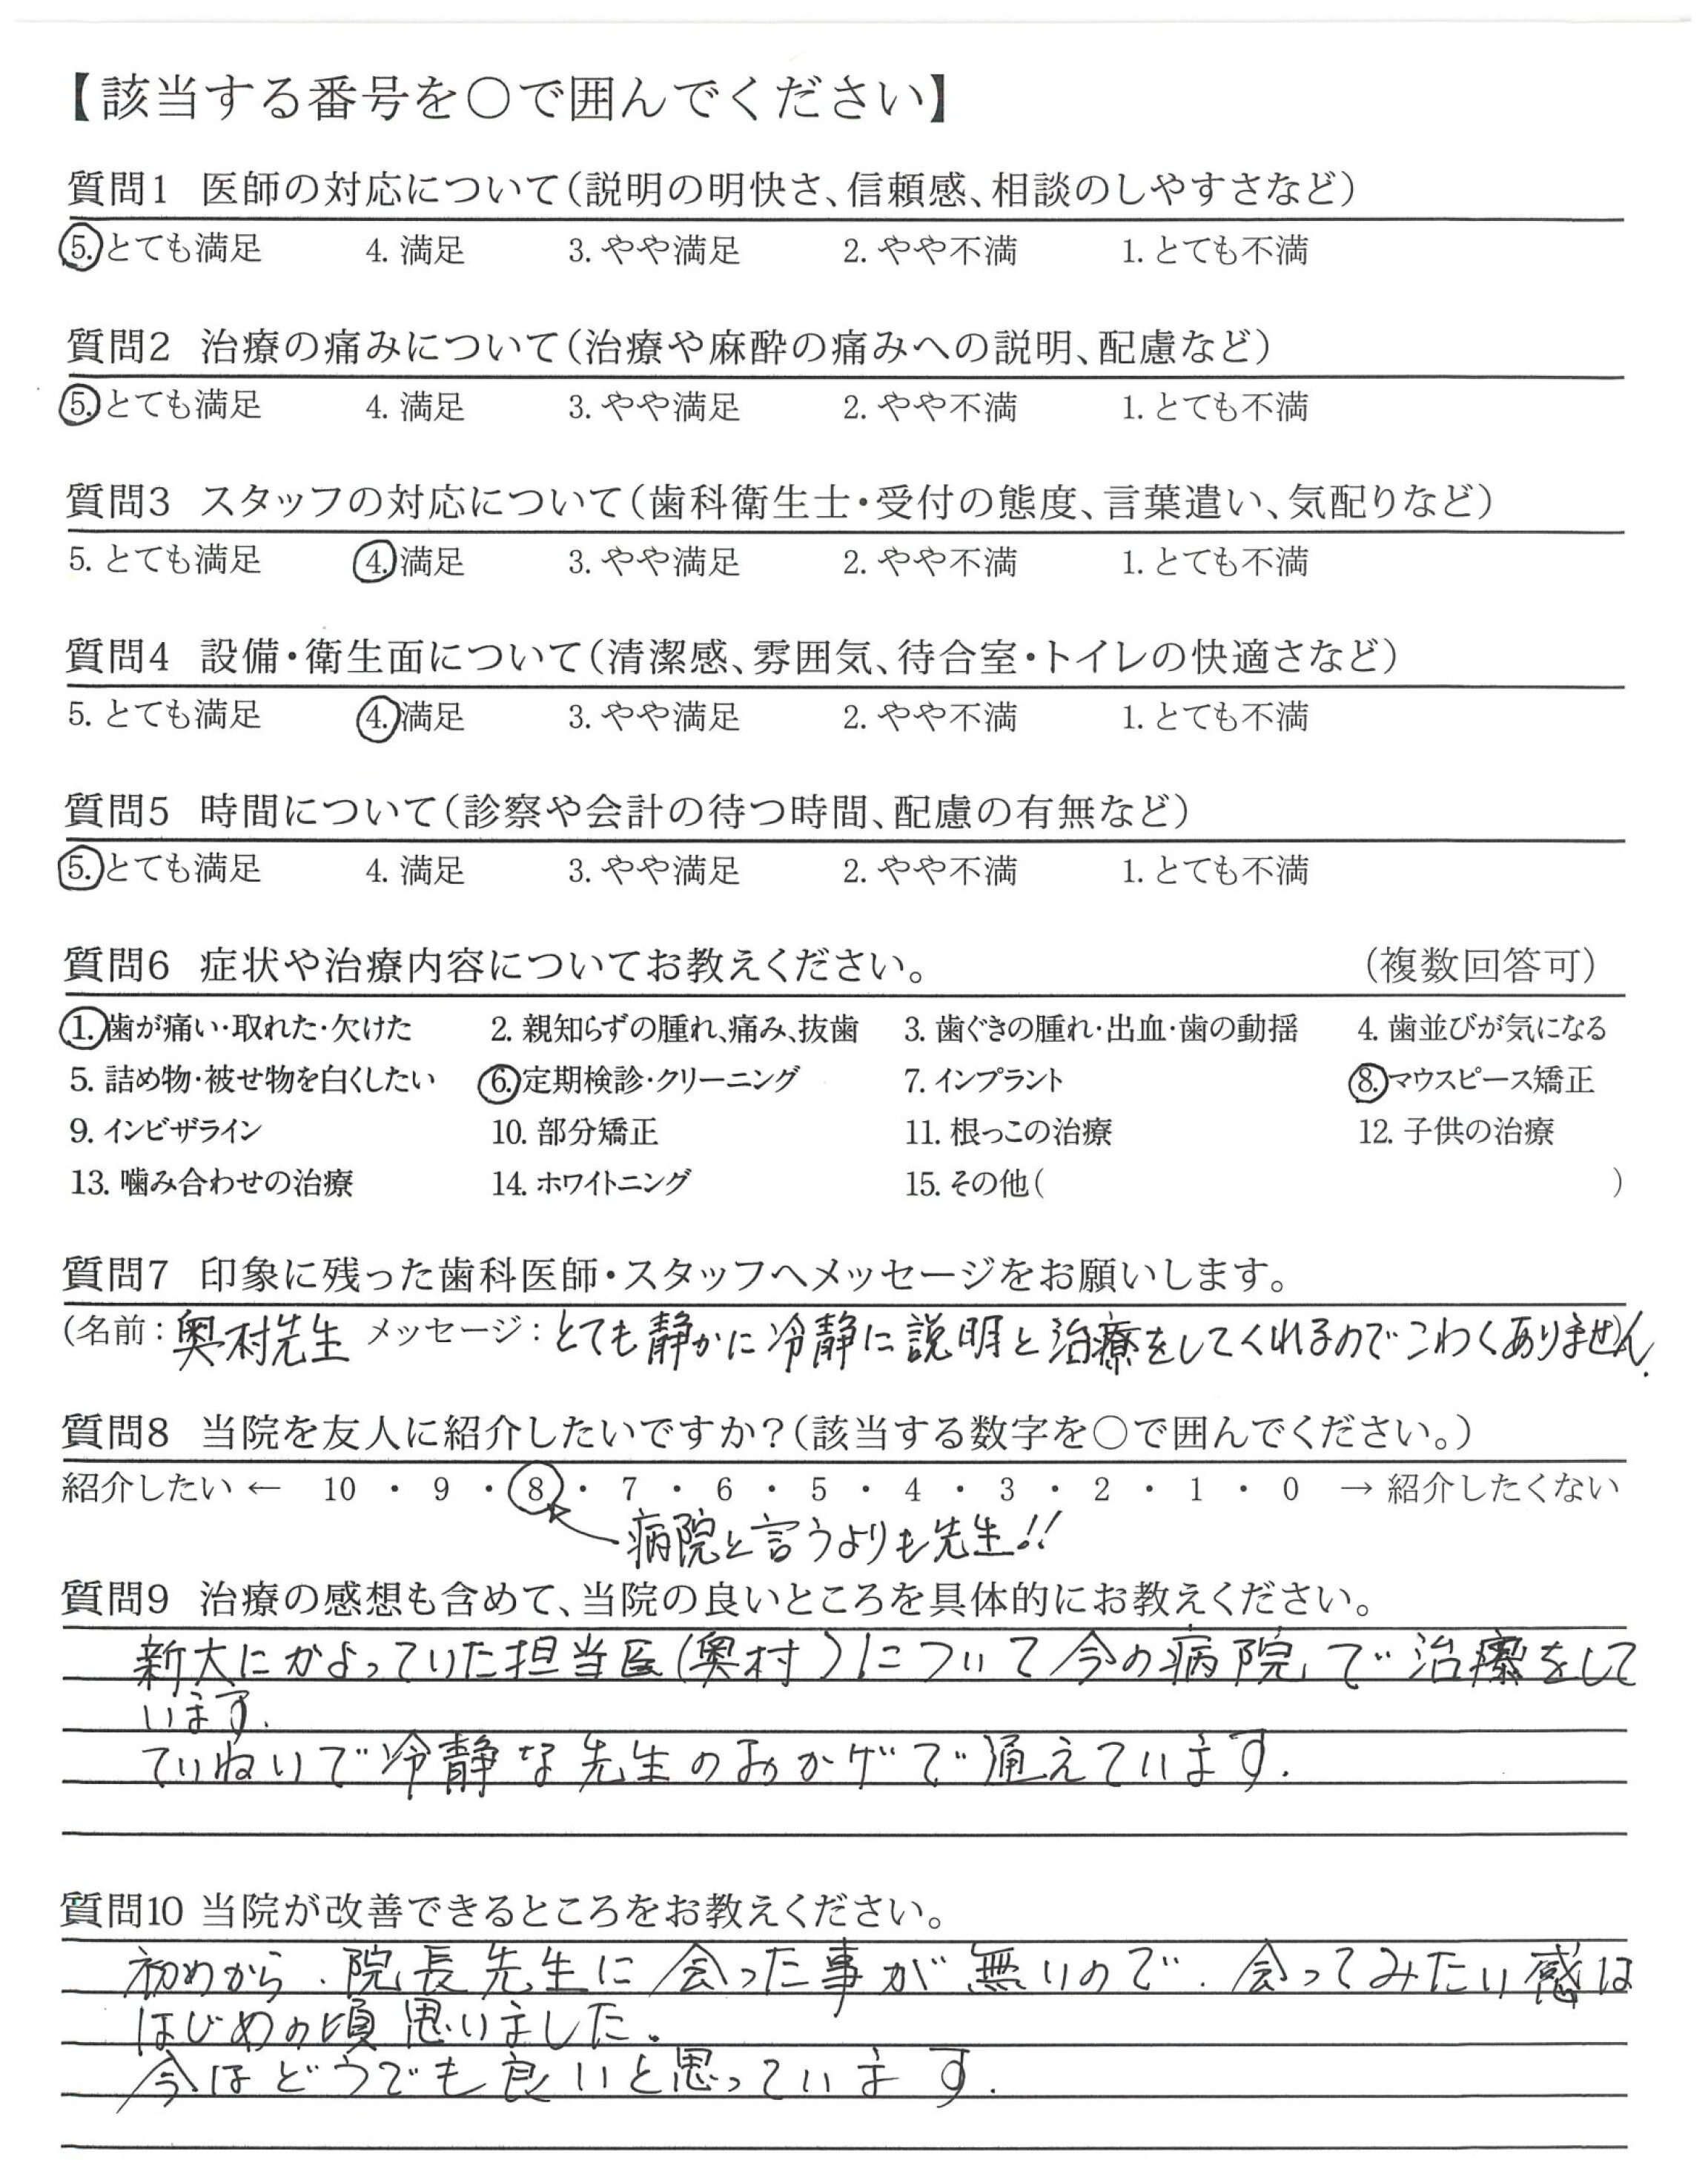 【該当する番号を○で囲んでください】
質問1 医師の対応について(説明の明快さ、信頼感、相談のしやすさなど)
5. とても満足 4. 満足 3. やや満足 2. やや不満 1. とても不満
質問2 治療の痛みについて(治療や麻酔の痛みへの説明、配慮など)
5. とても満足 4. 満足 3. やや満足 2. やや不満 1. とても不満
質問3 スタッフの対応について(歯科衛生士・受付の態度、言葉遣い、気配りなど)
5. とても満足 4. 満足 3. やや満足 2. やや不満 1. とても不満
質問4 設備・衛生面について(清潔感、雰囲気、待合室・トイレの快適さなど)
5. とても満足 4. 満足 3. やや満足 2. やや不満 1. とても不満
質問5 時間について(診察や会計の待つ時間、配慮の有無など)
5. とても満足 4. 満足 3. やや満足 2. やや不満 1. とても不満
質問6 症状や治療内容についてお教えください。 (複数回答可)
1. 歯が痛い・取れた・欠けた 2. 親知らずの腫れ、痛み、抜歯 3. 歯ぐきの腫れ・出血・歯の動揺 4. 歯並びが気になる
5. 詰め物・被せ物を白くしたい 6. 定期検診・クリーニング 7. インプラント 8. マウスピース矯正
9. インビザライン 10. 部分矯正 11. 根っこの治療 12. 子供の治療
13. 噛み合わせの治療 14. ホワイトニング 15. その他( )
質問7 印象に残った歯科医師・スタッフへメッセージをお願いします。
(名前:奥村先生 メッセージ:とても静かに冷静に説明と治療をしてくれるのでこわくありません.)
質問8 当院を友人に紹介したいですか?(該当する数字を○で囲んでください。)
紹介したい ← 10 ・ 9 ・ 8 ・ 7 ・ 6 ・ 5 ・ 4 ・ 3 ・ 2 ・ 1 ・ 0 → 紹介したくない
病院と言うよりも先生!!
質問9 治療の感想も含めて、当院の良いところを具体的にお教えください。
新大にかよっていた担当医(奥村)について今の病院で治療をして
います.
ていねいで冷静な先生のおかげで通えています.
質問10 当院が改善できるところをお教えください。
初めから、院長先生に会った事が無いので、会ってみたい感は
はじめの頃思いました。
今はどうでも良いと思っています.